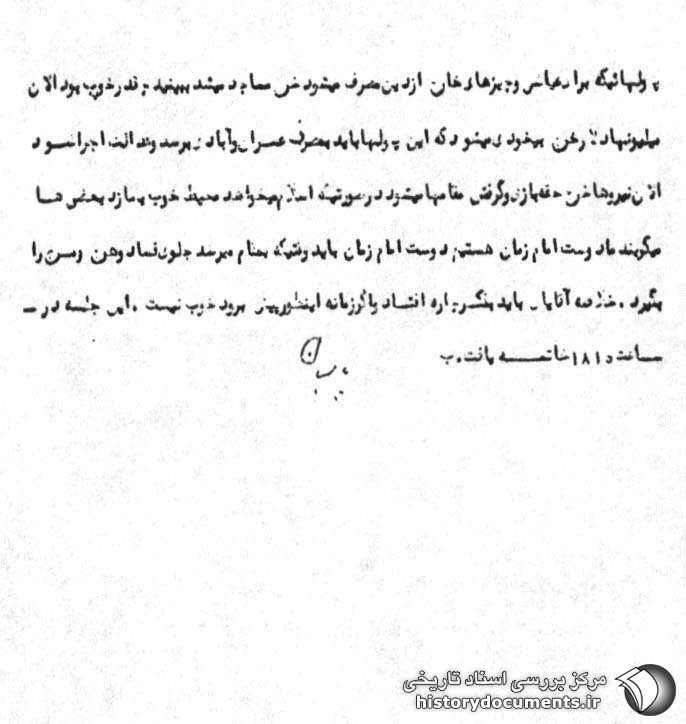 پولهائیکه برای عیاشی وچیزهای خارج ازدین مصرف میشود خرج مساجد میشد ببینید چقدر خوب بود الان
میلیونها دلار خرج بیخودی میشود که این پولها باید بمصرف عمران وآبادی برسد وعدالت اجرا شود
الان نیروها خرج حقه بازی وگرفتن مقامها میشود درصورتیکه اسلام میخواهد محیط خوب بسازد بعضی ها
میگویند مادوست امام زمان هستیم دوست امام زمان باید وقتیکه بمقام میرسد جلوی فساد وهن و را
بگیرد . خلاصه آقایان باید بفکر چاره افتاد واگر زمانه اینطور پیش برود خوب نیست . این جلسه در -
ساعت ۱۸۱۵ خاتمه یافت . ب
مرکز بررسی اسناد تاریخی
historydocuments.ir